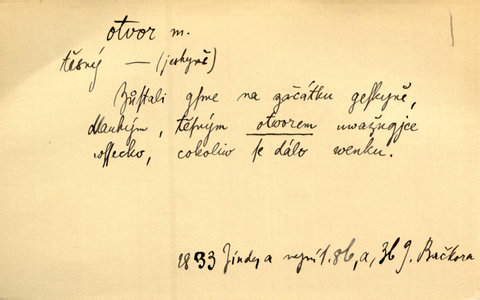 otvor m.
těsný — (jeskyně)
Zůstali gsme na začátku geskyně,
dlauhým, těsným otworem uwažugjce
wssecko, cokoliw se dálo wenku.
1833 Jindy a nyní 1. 86, a, 36 J. Bačkora